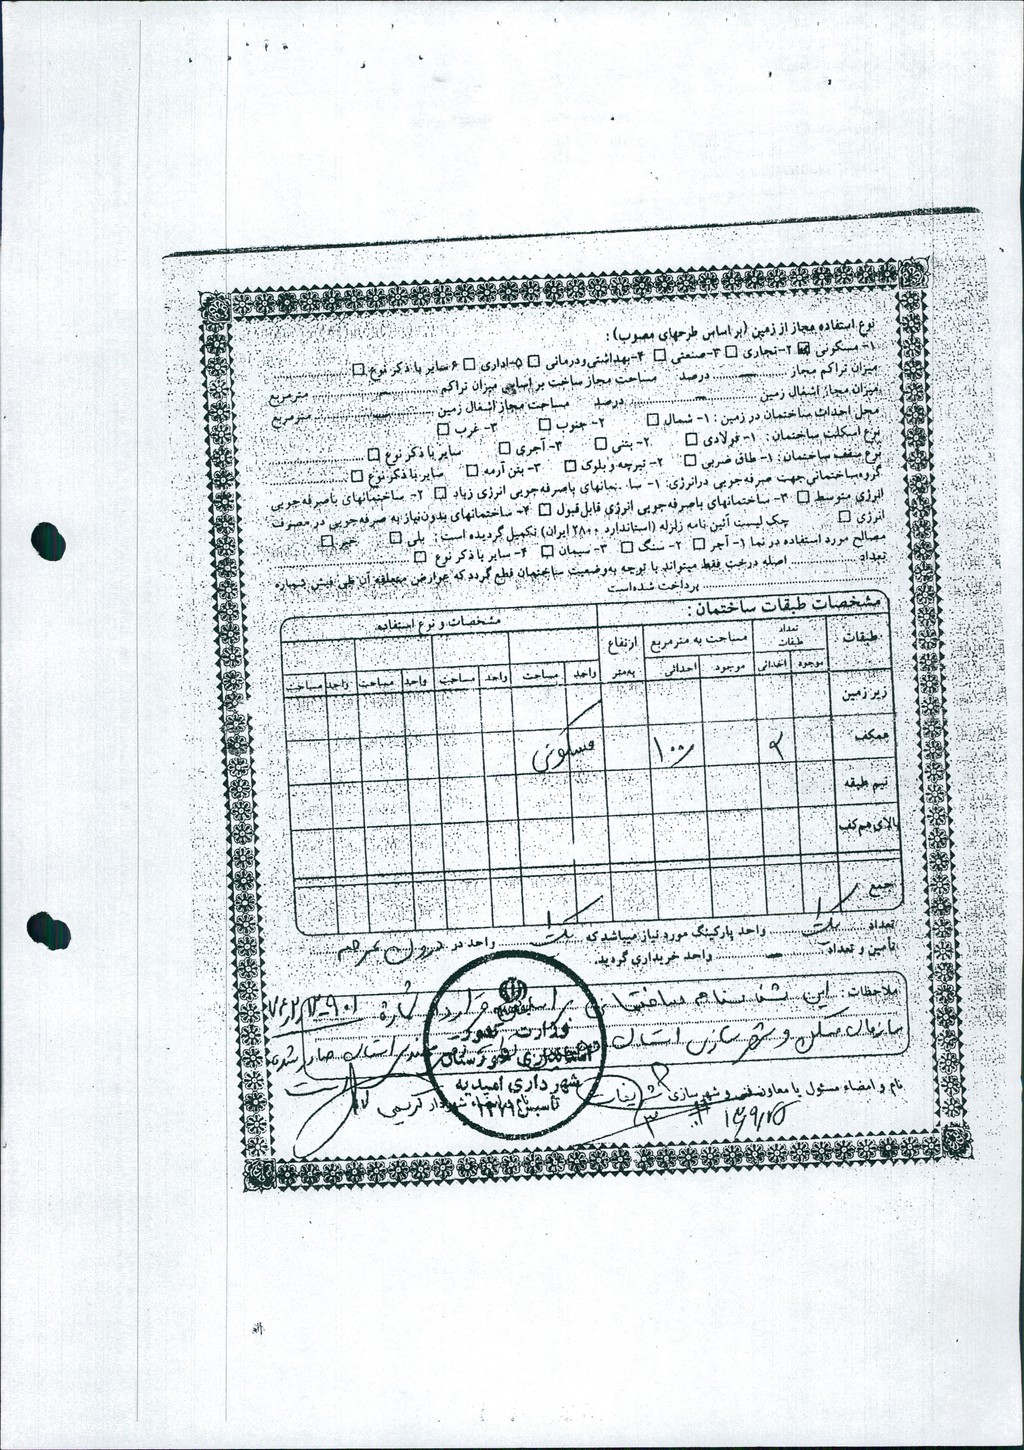 نوع استفاده مجاز از زمین (بر اساس طرحهای مصوب) :
۱- مسکونی ☒ ۲- تجاری □ ۳- صنعتی □ ۴- بهداشتی و درمانی □ ۵- اداری □ ۶ سایر با ذکر نوع □
میزان تراکم مجاز ــ درصد مساحت مجاز ساخت بر اساس میزان تراکم ــ مترمربع
میزان مجاز اشغال زمین ــ درصد مساحت مجاز اشغال زمین ــ مترمربع
محل احداث ساختمان در زمین : ۱- شمال □ ۲- جنوب □ ۳- غرب □
نوع اسکلت ساختمان : ۱- فولادی □ ۲- بتنی □ ۳- آجری □ سایر با ذکر نوع □
نوع سقف ساختمان : ۱- طاق ضربی □ ۲- تیرچه و بلوک □ ۳- بتن آرمه □ سایر با ذکر نوع □
گروه ساختمانی جهت صرفه جویی در انرژی: ۱- ساختمانهای با صرفه جویی انرژی زیاد □ ۲- ساختمانهای با صرفه جویی
انرژی متوسط □ ۳- ساختمانهای با صرفه جویی انرژی قابل قبول □ ۴- ساختمانهای بدون نیاز به صرفه جویی در مصرف
انرژی □ چک لیست آئین نامه زلزله (استاندارد ۲۸۰۰ ایران) تکمیل گردیده است : بلی □ خیر □
مصالح مورد استفاده در نما ۱- آجر □ ۲- سنگ □ ۳- سیمان □ ۴- سایر با ذکر نوع □
تعداد اصله درخت فقط میتواند با توجه به وضعیت ساختمان قطع گردد که عوارض متعلقه آن طی فیش شماره
پرداخت شده است
مشخصات طبقات ساختمان : مشخصات و نوع استفاده
طبقات تعداد طبقات مساحت به مترمربع ارتفاع به متر
موجود احداثی موجود احداثی واحد مساحت واحد مساحت واحد مساحت واحد مساحت
زیر زمین
همکف ۱۰۰ مسکونی
نیم طبقه
بالای هم کف
جمع
تعداد یک واحد پارکینگ مورد نیاز میباشد که یک واحد در درون عرصه
تأمین و تعداد ــ واحد خریداری گردید.
ملاحظات : این شناسنامه ساختمانی بر اساس قرارداد شماره
سازمان مسکن و شهرسازی استان
نام و امضاء مسئول یا معاون فنی و شهرسازی
وزارت کشور
استانداری خوزستان
شهرداری امیدیه
تأسیس
شهردار کریمی